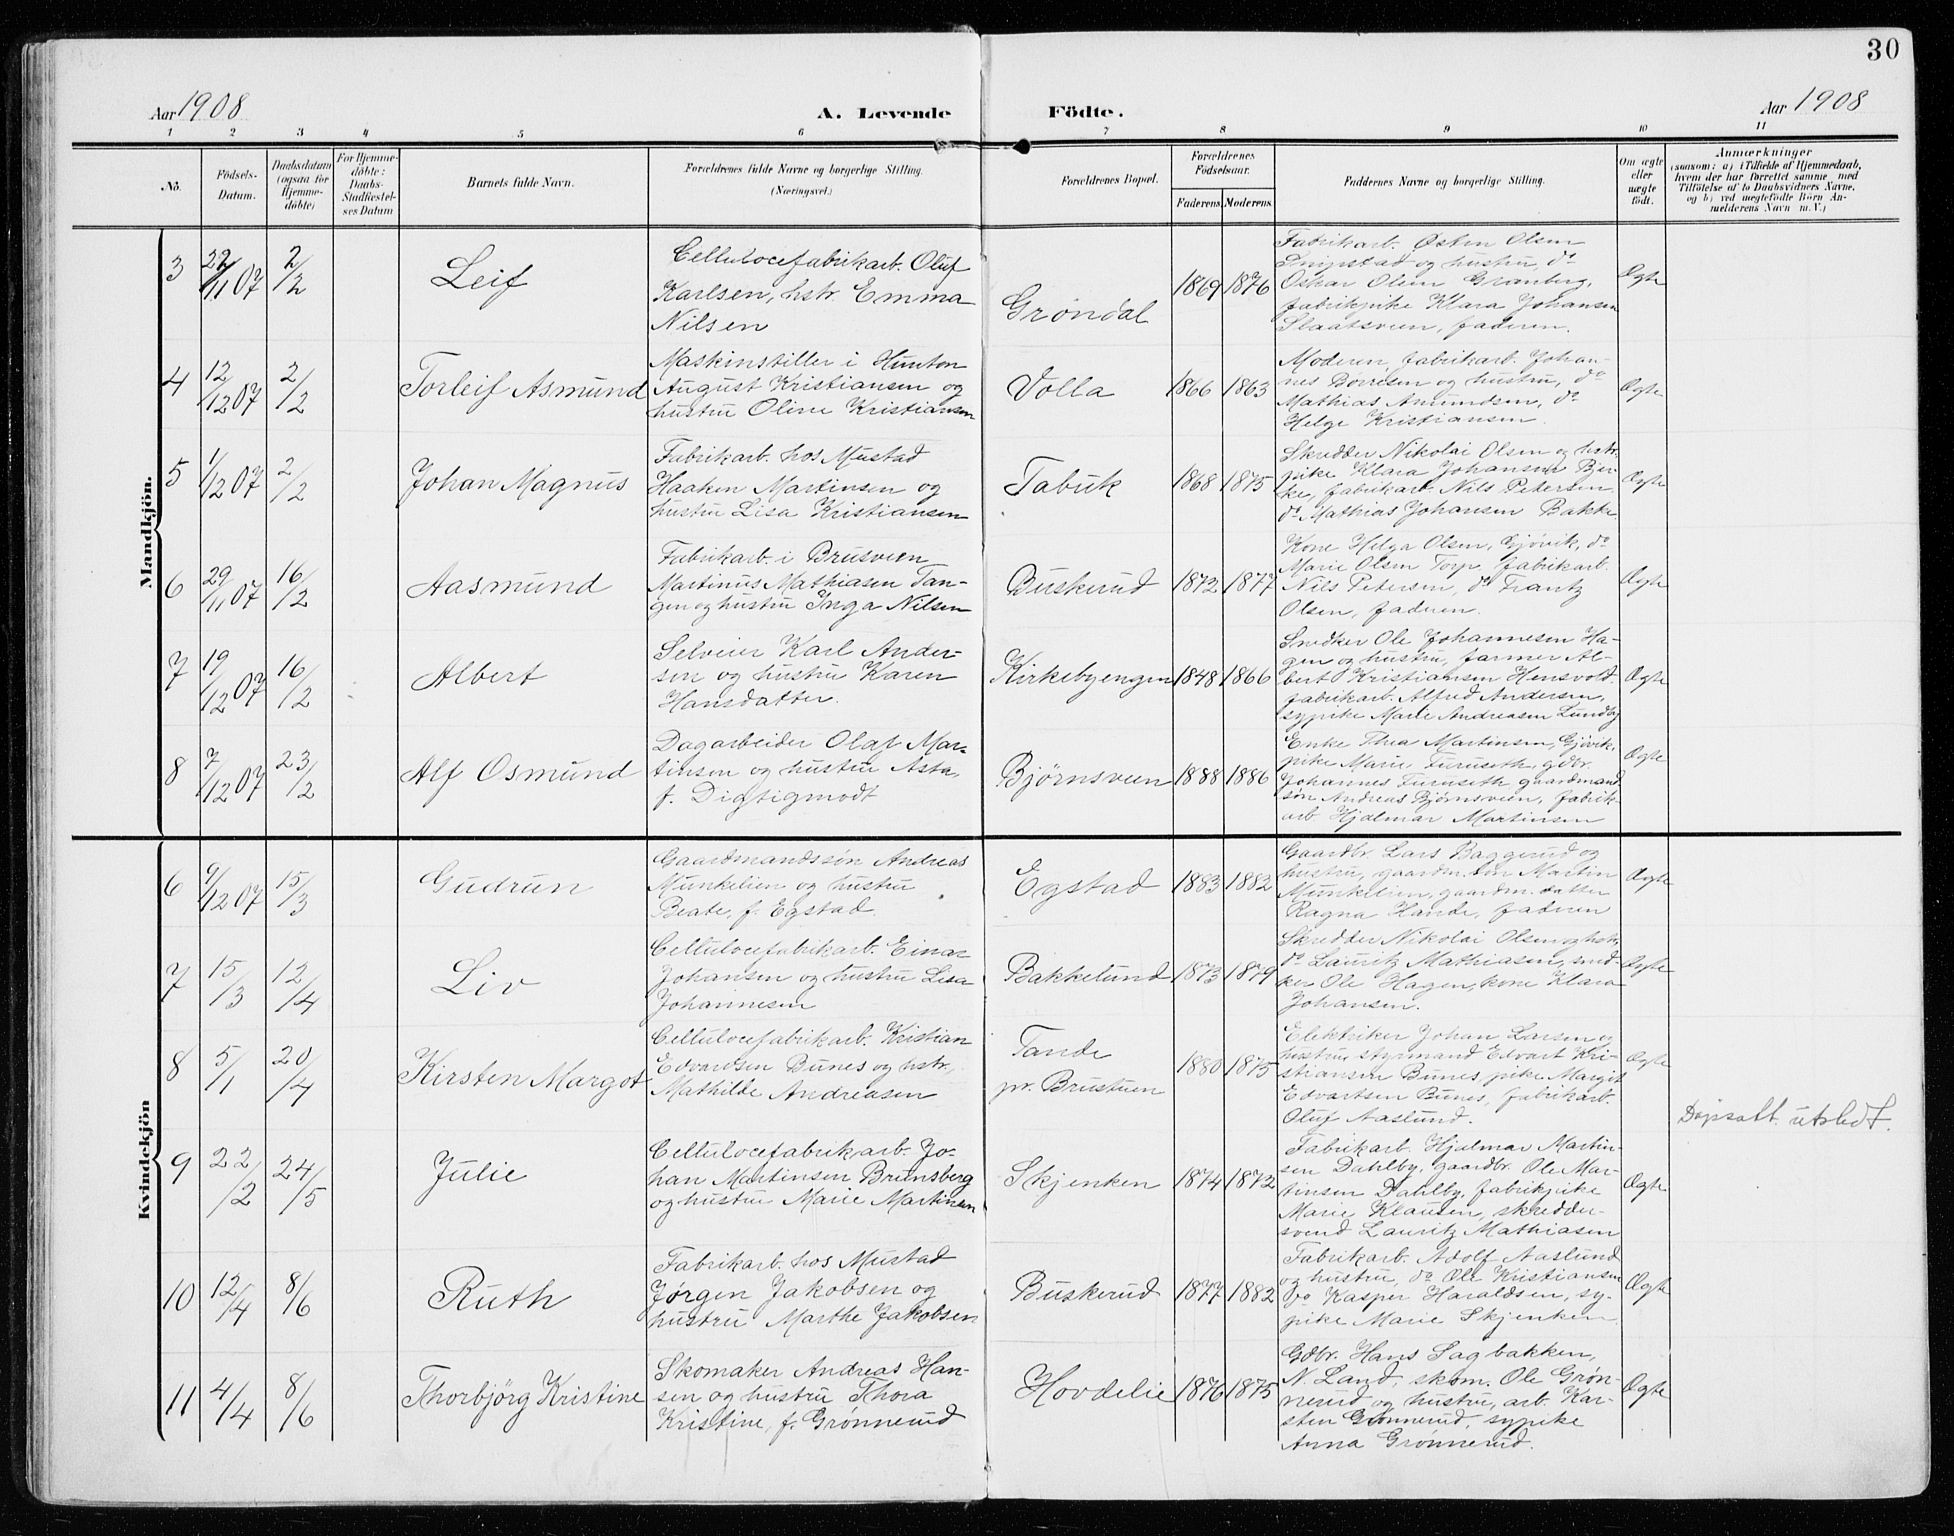 30
Aar 1908
A. Levende Födte.
Aar 1908
1 2 3 4 5 6 7 8 9 10 11
No.
Födsels-
Datum.
Daabsdatum
(ogsaa for
Hjemme-
döbte)
For Hjemme-
döbte:
Daabs-
Stadfæstel-
ses Datum
Barnets fulde Navn.
Forældrenes fulde Navne og borgerlige Stilling.
(Næringsvei.)
Forældrenes Bopæl.
Forældrenes
Födselsaar.
Faderens. Moderens.
Faddernes Navne og borgerlige Stilling.
Om ægte
eller
uægte
födt.
Anmærkninger
(saasom: a) i Tilfælde af Hjemmedaab,
hvem der har forrettet samme, med
Tilföielse af to Daabsvidners Navne,
og b) ved uægtefödte Börn An-
melderens Navn m. V.)
Mandkjön.
3
22/11 07
2/2
Leif
Cellulocefabrikarb. Oluf
Karlsen, hstr. Emma
Nilsen
Grøndal
1869 1876
Fabrikarb. Østen Olsen
og hustru, do
Oskar Olsen Granberg,
fabrikpike Klara Johansen
Slaatsveen, faderen.
Ægte
4
12/12 07
2/2
Torleif Asmund
Maskinstiller i Hunton
August Kristiansen og
hustru Oline Kristiansen
Volla
1866 1863
Moderen, fabrikarb. Johan-
nes Dørresen og hustru, do
Mathias Amundsen, do
Helge Kristiansen.
Ægte
5
1/12 07
2/2
Johan Magnus
Fabrikarb. hos Mustad
Haaken Martinsen og
hustru Lisa Kristiansen
Tabuk
1868 1875
Skredder Nikolai Olsen og hstr.
pike Klara Johansen Bjer-
ke, fabrikarb. Nils Petersen
do Mathias Johansen Bakke.
Ægte
6
29/11 07
16/2
Aasmund
Fabrikarb. i Brusveen
Martinus Mathiasen Tan-
gen og hustru Inga Nilsen
Buskerud
1872 1877
Kone Helga Olsen, Gjøvik, do
Marie Olsen Torp, fabrikarb.
Nils Petersen, do Frantz
Olsen, faderen.
Ægte
7
19/12 07
16/2
Albert
Selveier Karl Ander-
sen og hustru Karen
Hansdatter.
Kirkebyengen
1848 1866
Snedker Ole Johannesen Ha-
gen og hustru, farmer Al-
bert Kristiansen Hensvold.
fabrikarb. Alfred Andersen,
sypike Marie Andreasen Lundby
Ægte
8
7/12 07
23/2
Alf Osmund
Dagarbeider Olaf Mar-
tinsen og hustru Asta,
f. Digtigmodt
Bjørnsveen
1888 1886
Enke Thea Martinsen, Gjøvik,
pike Marie Furuseth, gdbr.
Johannes Furuseth gaardmand
søn Andreas Bjørnsveen, fabrik-
arb Hjalmar Martinsen
Ægte
Kvindekjön
6
9/12 07
15/3
Gudrun
Gaardmandssøn Andreas
Munkelien og hustru
Beate, f. Egstad.
Egstad
1883 1882
Gaardbr. Lars Baggerud og
hustru, gaardm. søn Martin
Munkelien, gaardm. datter
Ragna Hande, faderen
Ægte
7
15/3
12/4
Liv
Cellulocefabrikarb. Einar
Johansen og hustru Lisa
Johannesen
Bakkelund
1873 1879
Skredder Nikolai Olsen og hstr,
do Lauritz Mathiasen, sned-
ker Ole Hagen, kone Klara
Johansen.
Ægte
8
5/1
20/4
Kirsten Margot
Cellulocefabrikarb. Kristian
Edvardsen Bunes og hstr.
Mathilde Andreasen
Tande
pr. Brustuen
1880 1875
Elektriker Johan Larsen og
hustru, styrmand Edvart Kri-
stiansen Bunes, pike Margit
Edvartsen Bunes, fabrikarb.
Oluf Aaslund.
Ægte
Døpsatt. utstedt.
9
22/2
24/5
Julie
Cellulocefabrikarb. Jo-
han Martinsen Brunsberg
og hustru Marie Martinsen
Skjenken
1874 1872
Fabrikarb. Hjalmar Martin-
sen Dahlby, gaardbr. Ole Mar-
tinsen Dahlby, fabrikpike
Marie Klausen, skredder-
svend Lauritz Mathiasen
Ægte
10
12/4
8/6
Ruth
Fabrikarb. hos Mustad
Jørgen Jakobsen og
hustru Marthe Jakobsen
Buskerud
1877 1882
Fabrikarb. Adolf Aaslund
og hustru, do Ole Kristiansen
do Kasper Haraldsen, sy-
pike Marie Skjenken
Ægte
11
4/4
8/6
Thorbjörg Kristine
Skomaker Andreas Han-
sen og hustru Thora
Kristine, f. Grønnerud
Hovdelie
1876 1875
Gdbr. Hans Sagbakken,
N. Land, skom. Ole Grøn-
nerud og hustru, arb. Kar-
sten Grønnerud, sypike
Anna Grønnerud.
Ægte